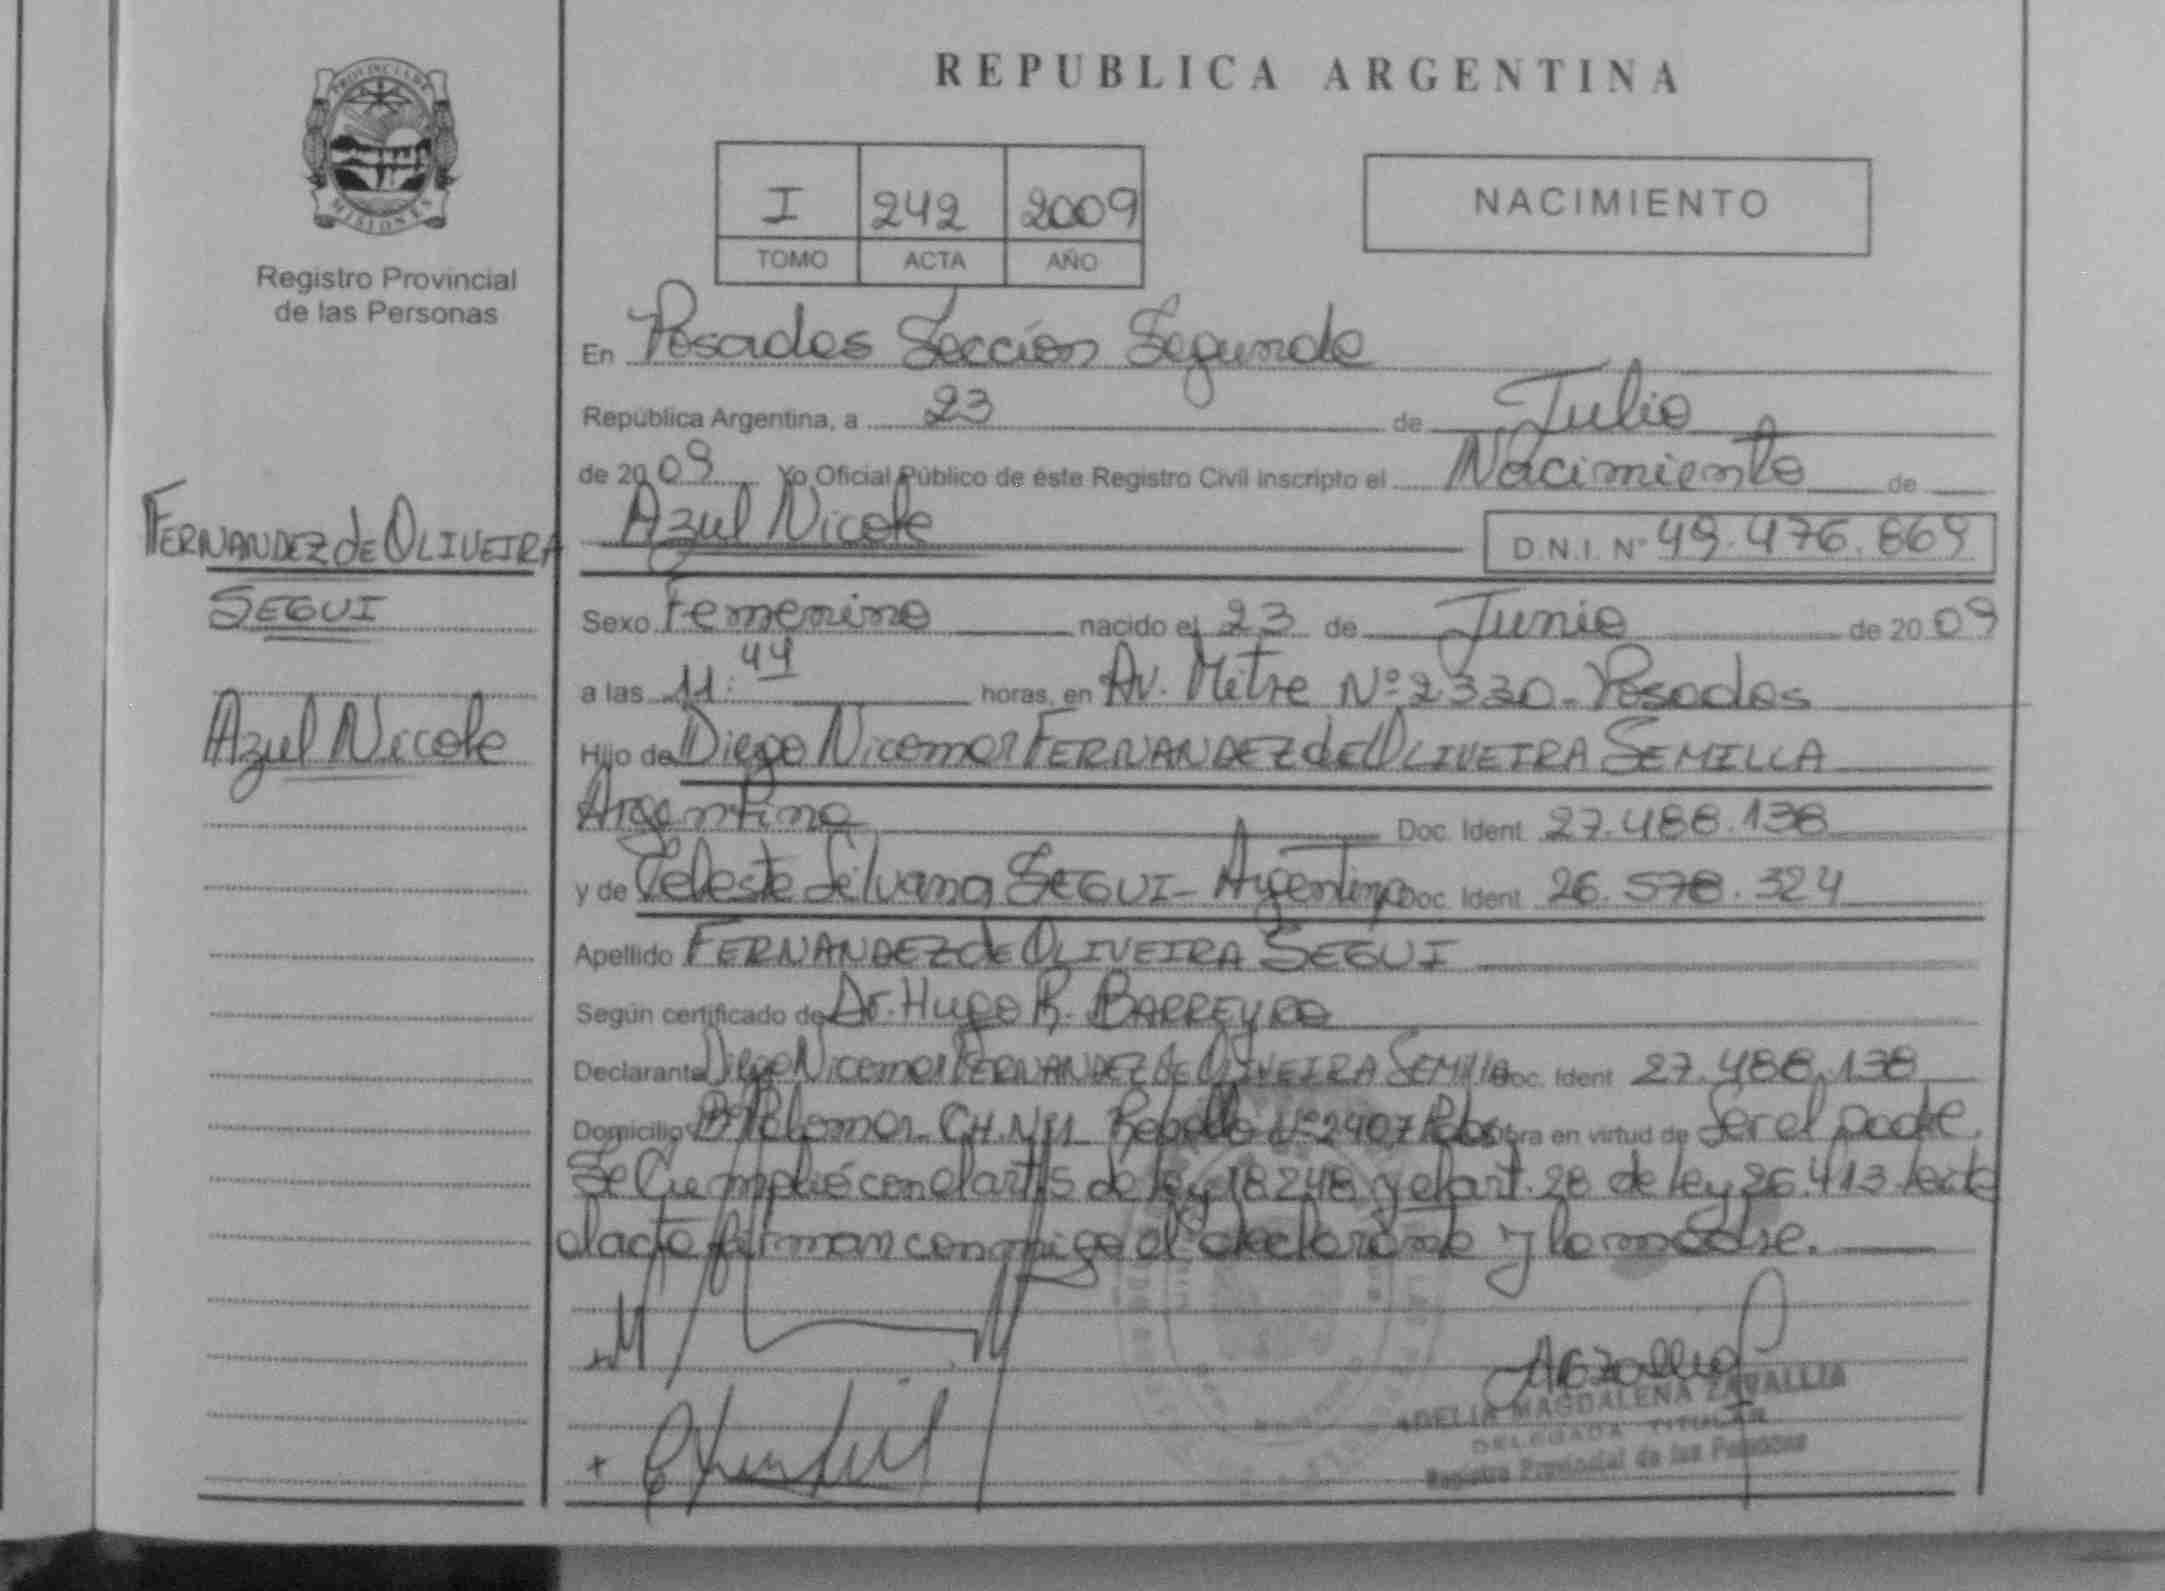 PROVINCIA DE
MISIONES
Registro Provincial
de las Personas
FERNANDEZ de OLIVEIRA
SEGUI
Azul Nicole
REPUBLICA ARGENTINA
I 242 2009
TOMO ACTA AÑO
NACIMIENTO
En Posadas Sección Segunda
República Argentina, a 23 de Julio
de 2009 Yo Oficial Público de éste Registro Civil inscripto el Nacimiento de
Azul Nicole D.N.I. Nº 49.476.869
Sexo Femenino nacido el 23 de Junio de 2009
a las 11:44 horas, en Av. Mitre Nº 2330 - Posadas
Hijo de Diego Nicomer FERNANDEZ de OLIVEIRA SEMILLA
Argentino Doc. Ident. 27.488.138
y de Celeste Silvana SEGUI - Argentina Doc. Ident. 26.578.324
Apellido FERNANDEZ de OLIVEIRA SEGUI
Según certificado de Dr. Hugo R. BARREYRO
Declarante Diego Nicomer FERNANDEZ de OLIVEIRA SEMILLA Doc. Ident. 27.488.138
Domicilio Bº Palomar CH. Nº Nº 2407 Obra en virtud de Ser el padre.
Se Cumplió con el art. 15 de ley 18248 y el art. 28 de ley 26.413. Leída
el acta firman conmigo el declarante y la madre.
DELIA MAGDALENA ZAVALLIA
DELEGADA TITULAR
Registro Provincial de las Personas